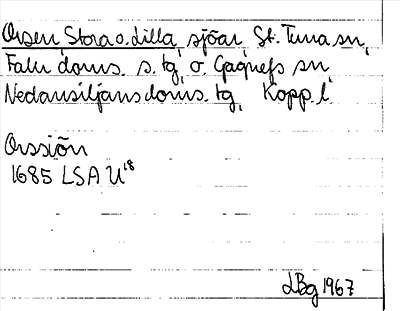 Orsen Stora o. Lilla, sjöar, St. Tuna sn,
Falu doms. s. tg, o. Gagnefs sn,
Nedansiljans doms. tg, Kopp. l.
Orssiön
1685 LSA U18
LBg 1967